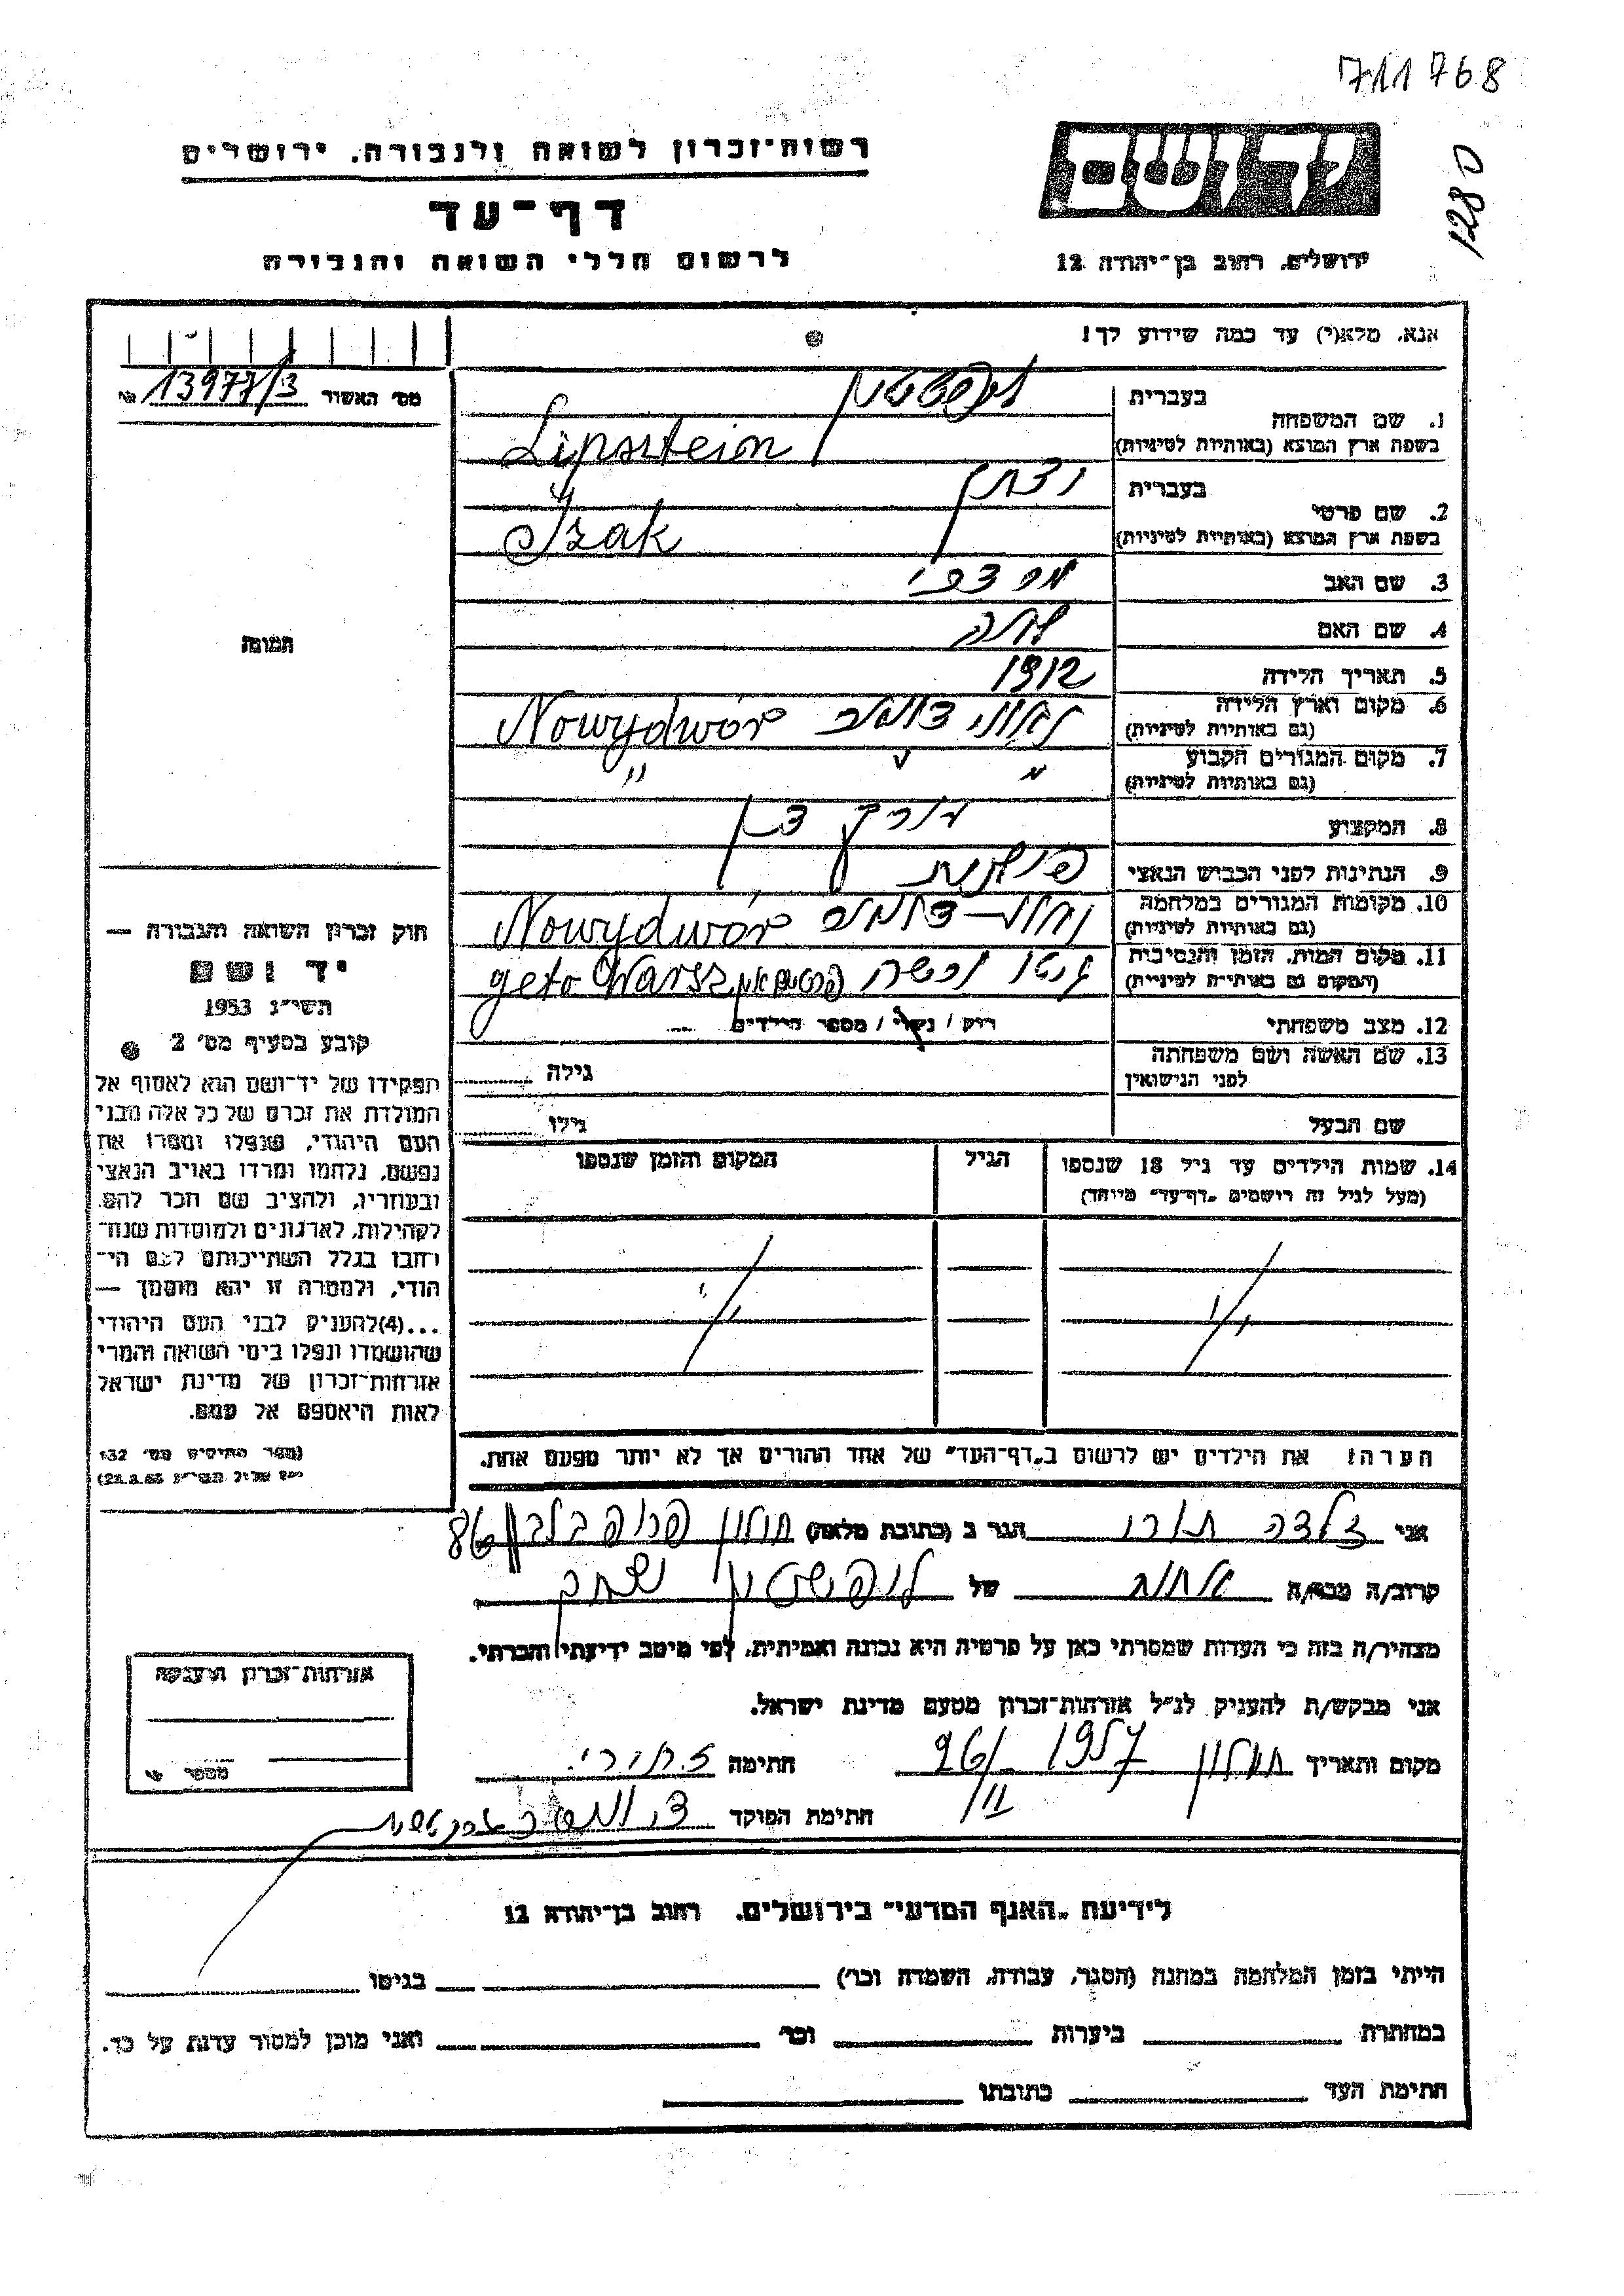 711768
128 ס
רשות־זכרון לשואה ולגבורה, ירושלים
דף־עד
לרשום חללי השואה והגבורה
ידושם
ירושלים, רחוב בן־יהודה 12
אנא, מלא(י) עד כמה שידוע לך!
מס׳ האשור 13977/3
1. שם המשפחה
בעברית ליפשטין
בשפת ארץ המוצא (באותיות לטיניות) Lipsztein
2. שם פרטי
בעברית
בשפת ארץ המוצא (באותיות לטיניות) Izak
3. שם האב מרדכי
4. שם האם
5. תאריך הלידה 1912
6. מקום וארץ הלידה
(גם באותיות לטיניות) Nowydwór
7. מקום המגורים הקבוע
(גם באותיות לטיניות) " "
8. המקצוע עורך דין
9. הנתינות לפני הכבוש הנאצי פולנית
10. מקומות המגורים במלחמה
(גם באותיות לטיניות) Nowydwór
11. מקום המות, הזמן והנסיבות
(המקום גם באותיות לטיניות) גיטו ורשה geto Warsz
12. מצב משפחתי רוק / נשוי / מספר הילדים
13. שם האשה ושם משפחתה
לפני הנישואין
גילה
שם הבעל גילו
14. שמות הילדים עד גיל 18 שנספו
(מעל לגיל זה רושמים "דף־עד" מיוחד)
הגיל
המקום והזמן שנספו
הערה! את הילדים יש לרשום ב"דף־העד" של אחד ההורים אך לא יותר מפעם אחת.
תמונה
חוק זכרון השואה והגבורה —
יד ושם
תשי״ג 1953
קובע בסעיף מס׳ 2
תפקידו של יד־ושם הוא לאסוף אל
המולדת את זכרם של כל אלה מבני
העם היהודי, שנפלו ומסרו את
נפשם, נלחמו ומרדו באויב הנאצי
ובעוזריו, ולהציב שם וזכר להם,
לקהילות, לארגונים ולמוסדות שנח־
רבו בגלל השתייכותם לעם הי־
הודי, ולמטרה זו יהא מוסמך —
...(4)להעניק לבני העם היהודי
שהושמדו ונפלו בימי השואה והמרי
אזרחות־זכרון של מדינת ישראל
לאות היאספם אל עמם.
(ספר החוקים מס׳ 132
אני הגר ב (כתובת מלאה) חולון 86
קרוב/ה מכר/ה אחות של ליפשטין יצחק
מצהיר/ה בזה כי העדות שמסרתי כאן על פרטיה היא נכונה ואמיתית, לפי מיטב ידיעתי והכרתי.
אני מבקש/ת להעניק לנ״ל אזרחות־זכרון מטעם מדינת ישראל.
מקום ותאריך חולון 1957 26/II חתימה
חתימת הפוקד
אזרחות־זכרון הוענקה
מספר
לידיעת "האגף המדעי" בירושלים, רחוב בן־יהודה 12
הייתי בזמן המלחמה במחנה (הסגר, עבודה, השמדה וכו׳) בגיטו
במחתרת ביערות וכו׳ ואני מוכן למסור עדות על כך.
חתימת העד כתובתו